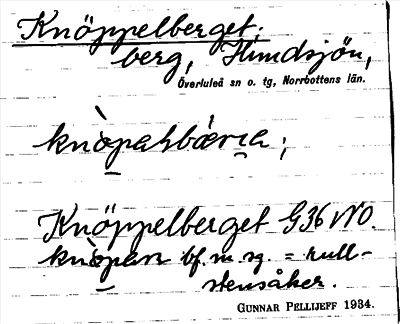 Knöppelberget;
berg, Hundsjön,
Överluleå sn o. tg, Norrbottens län.
Knöppelberget G36 NO.
bf. m. sg. = rull-
stensåker.
GUNNAR PELLIJEFF 1934.